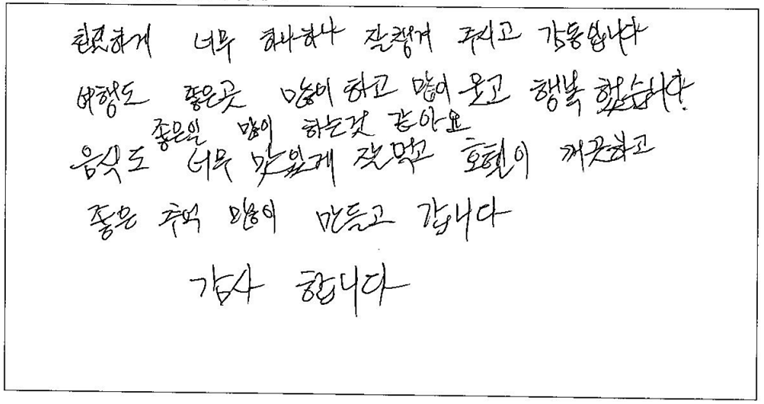 친절하게 너무 하나하나 잘챙겨 주시고 감동입니다
여행도 좋은곳 많이 하고 많이 웃고 행복 했습니다.
좋은일 많이 하는것 같아요
음식도 너무 맛있게 잘먹고 호텔이 깨끗하고
좋은 추억 많이 만들고 갑니다
감사 합니다